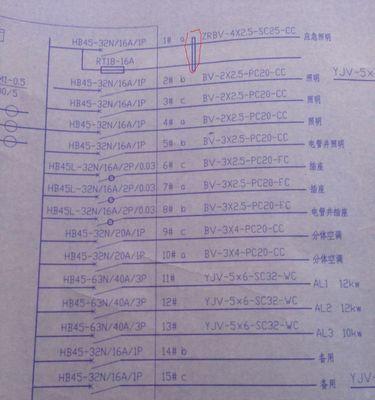 HB45-32N/16A/1P 1# a ZRBV-4X2.5-SC25-CC 应急照明
RT18-16A
HB45-32N/16A/1P 2# b BV-2X2.5-PC20-CC 照明
YJV-5×
M1-0.5
HB45-32N/16A/1P 3# c BV-2X2.5-PC20-CC 照明
00/5
HB45-32N/16A/1P 4# a BV-2X2.5-PC20-CC 照明
HB45-32N/16A/1P 5# b BV-3X2.5-PC20-CC 电管井照明
HB45L-32N/16A/2P/0.03 6# c BV-3X2.5-PC20-FC 插座
HB45L-32N/16A/2P/0.03 7# a BV-3X2.5-PC20-FC 插座
HB45L-32N/16A/2P/0.03 8# b BV-3X2.5-PC20-FC 电管井插座
HB45-32N/20A/1P 9# c BV-3X4-PC20-CC 分体空调
HB45-32N/20A/1P 10# a BV-3X4-PC20-CC 分体空调
HB45-63N/40A/3P 11# YJV-5×6-SC32-WC AL1 12kw
HB45-63N/40A/3P 12# YJV-5×6-SC32-WC AL2 12kw
HB45-63N/40A/3P 13# YJV-5×6-SC32-WC AL3 10kw
HB45-32N/16A/1P 14# b 备用
HB45-32N/16A/1P 15# c 备用
YJV-